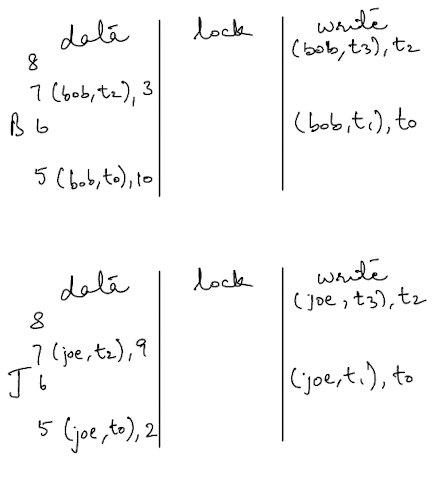 data lock write
8 (bob, t3), t2
7 (bob, t2), 3
B 6 (bob, t1), t0
5 (bob, t0), 10
data lock write
8 (joe, t3), t2
7 (joe, t2), 9
J 6 (joe, t1), t0
5 (joe, t0), 2